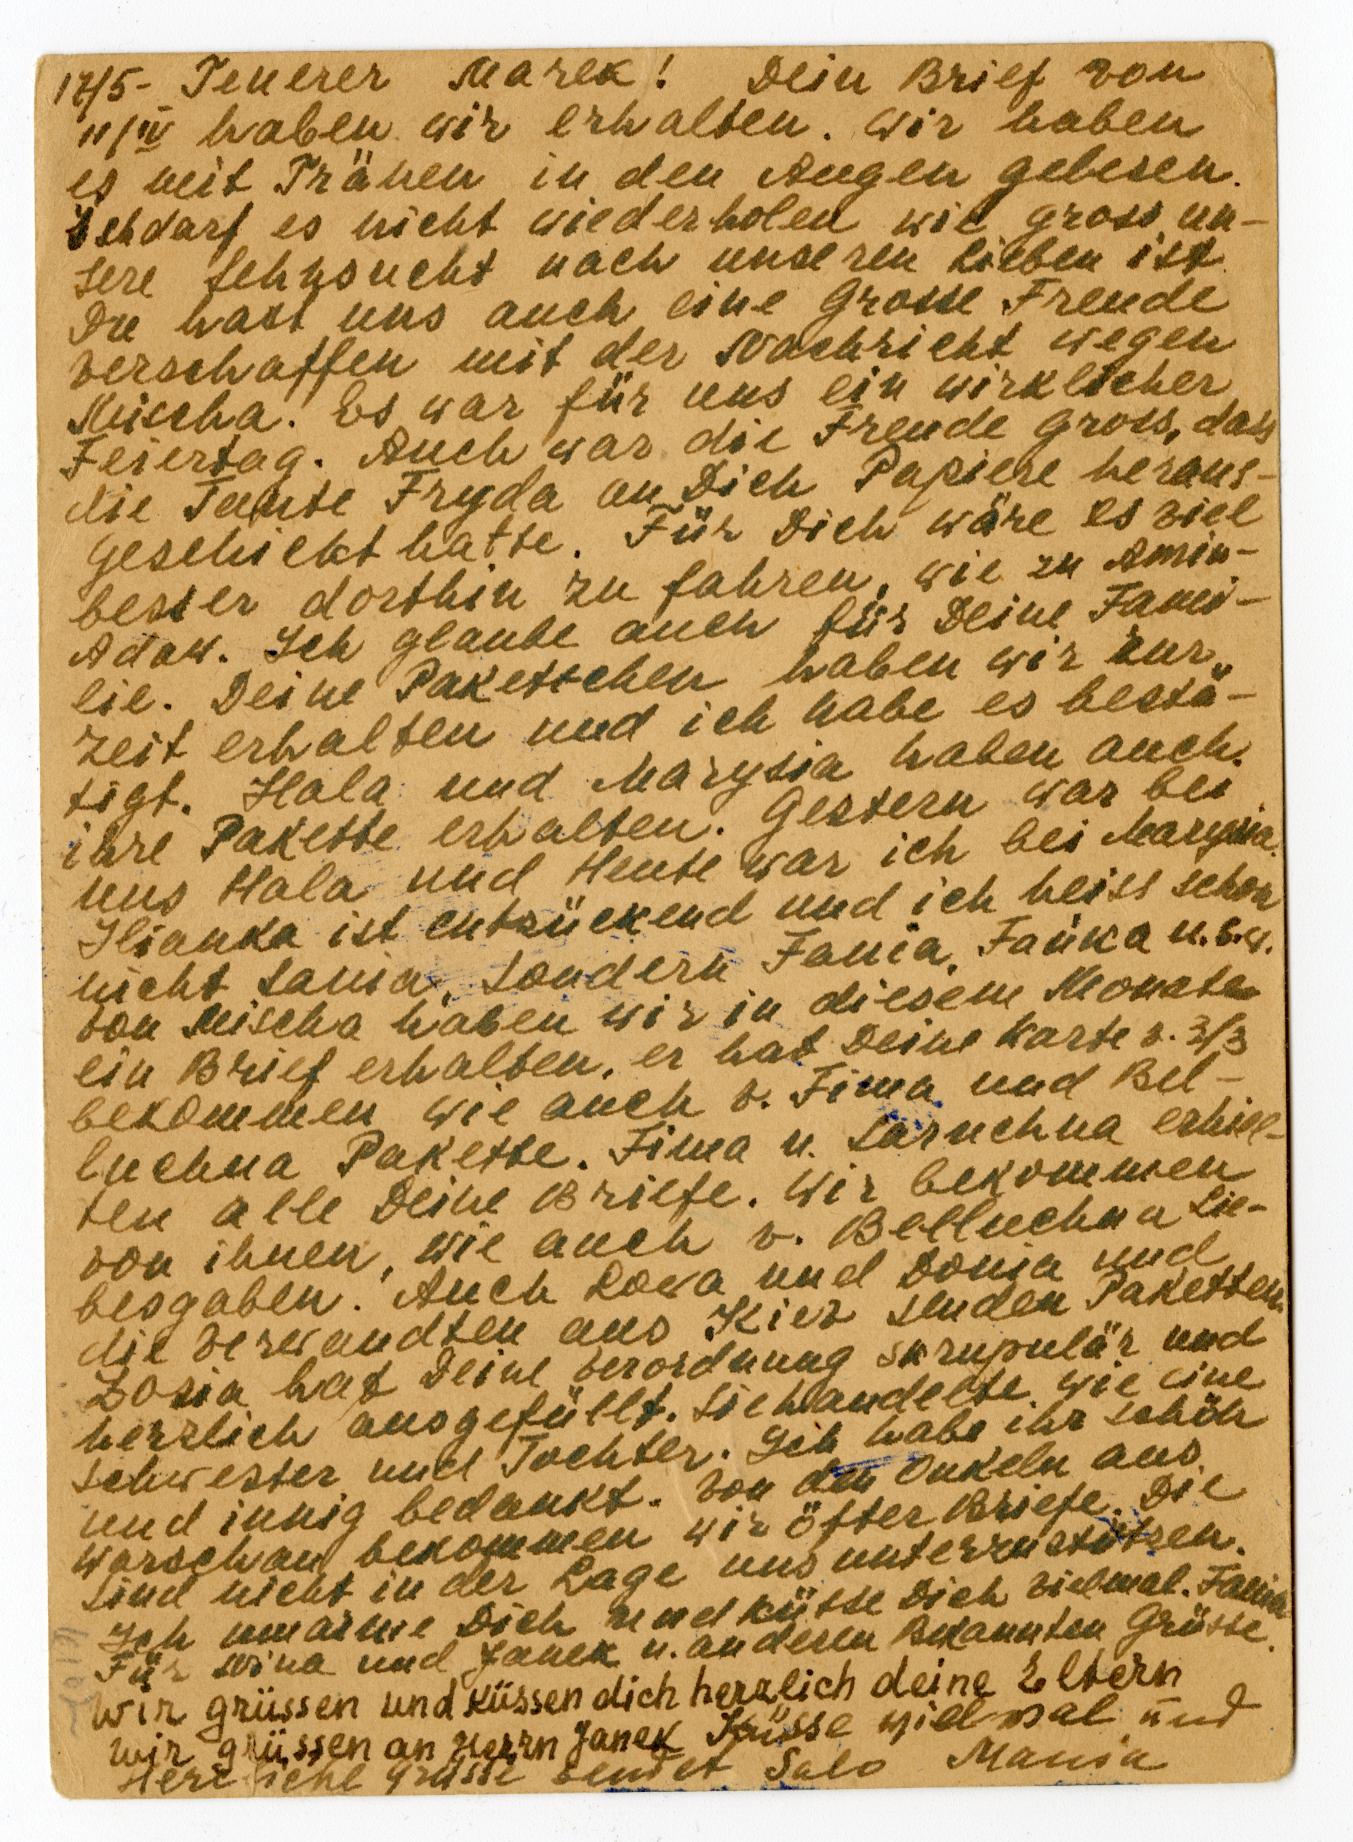 17/5- Teuerer Marek! Dein Brief von
11/IV haben wir erhalten. Wir haben
es mit Tränen in den Augen gelesen.
Ich darf es nicht wiederholen wie gross un-
sere Sehnsucht nach unseren Lieben ist.
Du hast uns auch eine Grosse Freude
verschaffen mit der Nachricht wegen
Mischa. Es war für uns ein wirklicher
Feiertag. Auch war die Freude gross, dass
die Tante Fryda an Dich Papiere heraus-
geschickt hatte. Für Dich wäre es viel
besser dorthin zu fahren, wie zu Amin-
Adaw. Ich glaube auch für Deine Fami-
lie. Deine Paketschen haben wir zur
Zeit erhalten und ich habe es bestä-
tigt. Hala und Marysia haben auch
ihre Pakette erhalten. Gestern war bei
uns Hala und Heute war ich bei Marysia.
Ilianka ist entzückend und ich heiss schon
nicht Sania, sondern Fania, Fańka u.s.w.
von Mischa haben wir in diesem Monate
ein Brief erhalten, er hat Deine Karte v. 3/3
bekommen wie auch v. Fima und Bel-
luchna Pakette. Fima u. Saruchna erhiel-
ten alle Deine Briefe. Wir bekommen
von ihnen, wie auch v. Belluchna Lie-
besgaben. Auch Lowa und Donia und
die Verwandten aus Kiev senden Paketten.
Zosia hat Deine Verordnung skrupulär und
herzlich ausgefüllt. Sie handelte wie eine
Schwester und Tochter. Ich habe ihr schön
und innig bedankt. Von den Onkeln aus
Warschau bekommen wir öfter Briefe. Die
sind nicht in der Lage uns unterzustützen.
Ich umarme Dich und küsse Dich vielmal. Fania
Für Nina und Janek u. anderen Bekannten Grüsse.
Wir grüssen und küssen dich herzlich deine Eltern
wir grüssen an Herrn Janek Küsse vielmal und
Herzliche Grüsse sendet Salo Mania